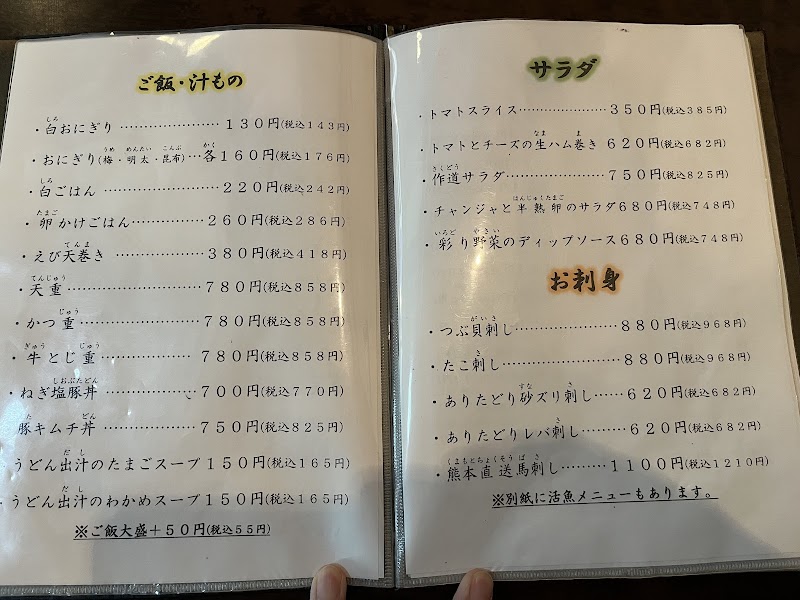 ご飯・汁もの
・白おにぎり ………………… １３０円(税込１４３円)
・おにぎり(梅・明太・昆布)…各１６０円(税込１７６円)
・白ごはん ………………… ２２０円(税込２４２円)
・卵かけごはん……………… ２６０円(税込２８６円)
・えび天巻き ……………… ３８０円(税込４１８円)
・天重……………………… ７８０円(税込８５８円)
・かつ重…………………… ７８０円(税込８５８円)
・牛とじ重 ……………… ７８０円(税込８５８円)
・ねぎ塩豚丼 ……………… ７００円(税込７７０円)
豚キムチ丼 ……………… ７５０円(税込８２５円)
うどん出汁のたまごスープ１５０円(税込１６５円)
・うどん出汁のわかめスープ１５０円(税込１６５円)
※ご飯大盛＋５０円(税込５５円)
サラダ
・トマトスライス………………３５０円(税込３８５円)
・トマトとチーズの生ハム巻き ６２０円(税込６８２円)
・作道サラダ………………… ７５０円(税込８２５円)
・チャンジャと半熟卵のサラダ６８０円(税込７４８円)
・彩り野菜のディップソース６８０円(税込７４８円)
お刺身
・つぶ貝刺し………………… ８８０円(税込９６８円)
・たこ刺し…………………… ８８０円(税込９６８円)
・ありたどり砂ズリ刺し……６２０円(税込６８２円)
・ありたどりレバ刺し………６２０円(税込６８２円)
・熊本直送馬刺し………１１００円(税込１２１０円)
※別紙に活魚メニューもあります。